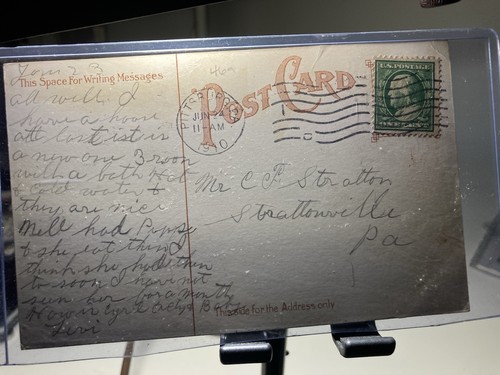 This Space For Writing Messages
all well. I
have a house
at last it is
a new one 3 room
with a bath Hot
& cold water &
they are nice
Mell had Pups
& she eat them I
think she had them
to soon I have not
seen her for a month
How is
Levi
469
POST CARD
JUN
11-AM
U.S. POSTAGE
Mr C F Stratton
Strattonville
Pa
This side for the Address only